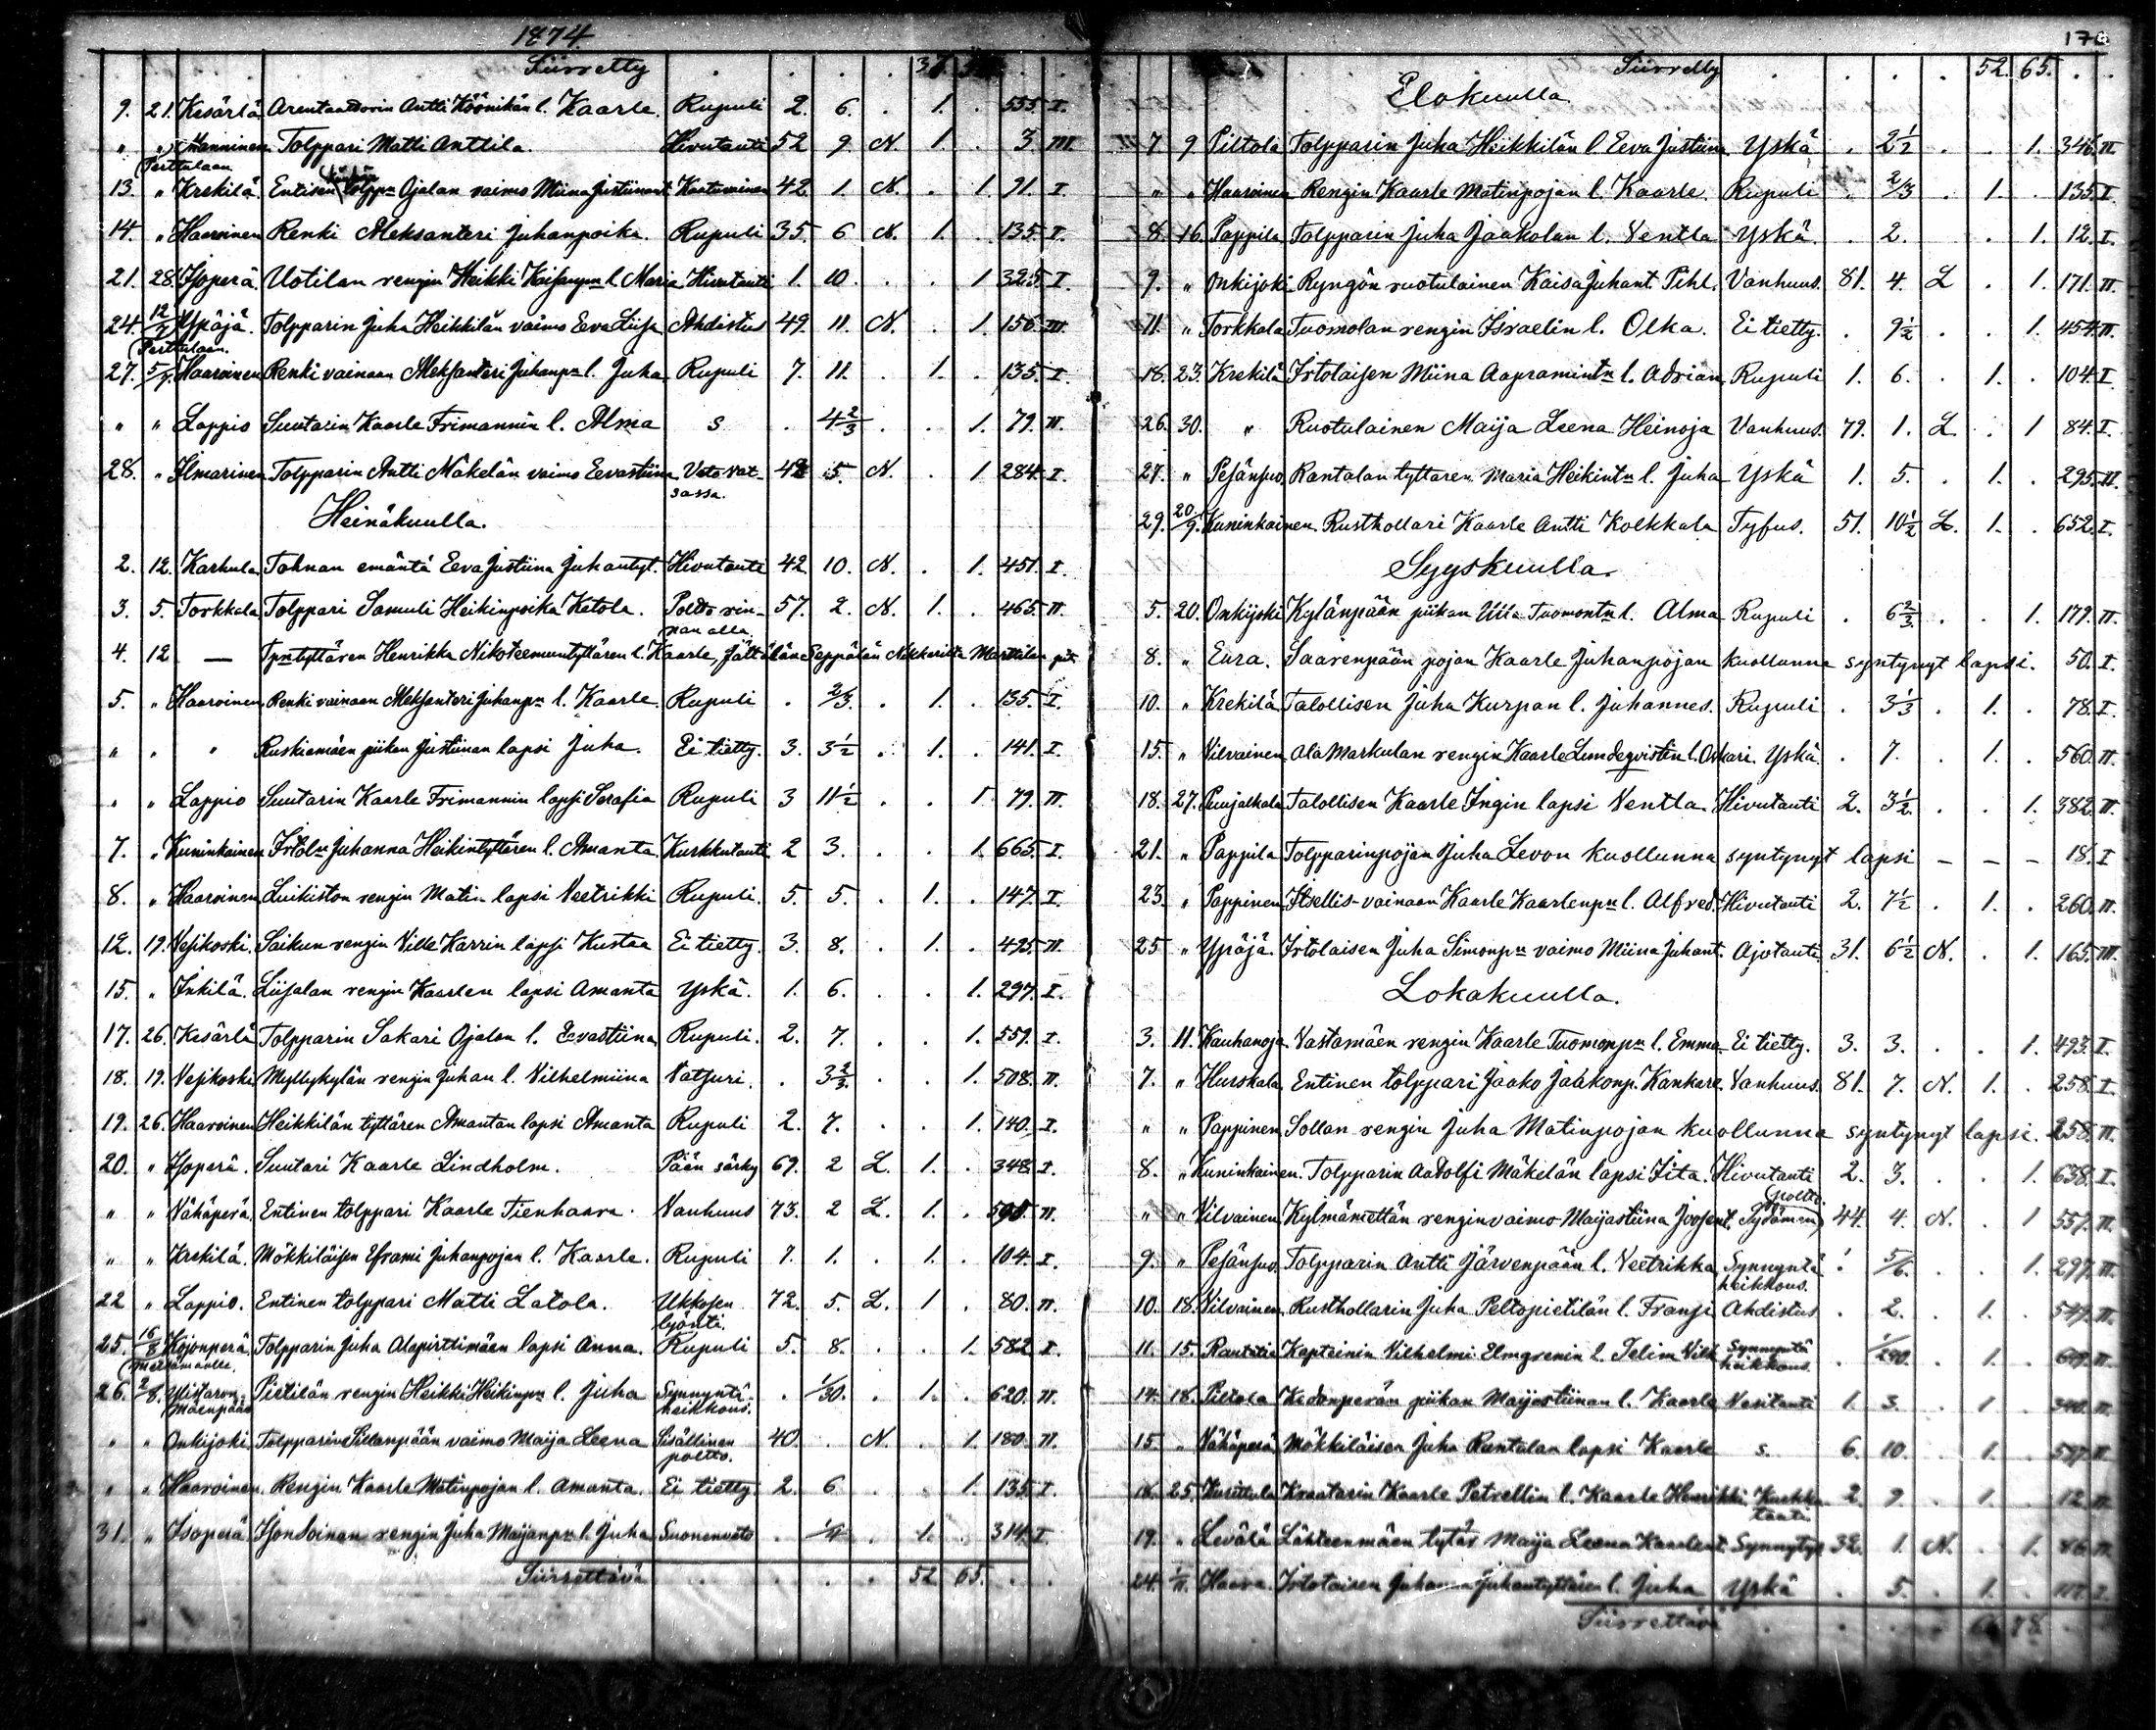 1874
Siirretty . . . . 37. . .
9. 21. Kesärlä Arentaattorin Antti Köönikän l. Kaarle. Rupuli 2. 6. . 1. . 555. I.
" " Manninen Tolppari Matti Anttila. Hivutauti 52 9 N. 1 . 3. III.
(Perttulaan.
13. " Krekilä. Entisen Tolppn Ojalan vaimo Miina Justiinant. Kaatuvainen 42. 1. N. . 1 91. I.
14. " Haaroinen Renki Aleksanteri Juhanpoika. Rupuli 35. 6 N. 1. . 135. I.
21. 28. Isoperä. Uotilan rengin Heikki Kaisanpn l. Maria Hivutauti 1. 10. . . 1 325. I.
24. 12/7 Ypäjä. Tolpparin Juha Heikkilän vaimo Eeva Liisa Ahdistus 49. 11. N. . 1. 156. III.
(Perttulaan.
27. 5/7. Haaroinen Renki vainaan Aleksanteri Juhanpn l. Juha Rupuli 7. 11. . 1. . 135. I.
" " Lappio Suutarin Kaarle Frimannin l. Alma s . 4 2/3 . . 1. 79. II.
28. " Ilmarinen Tolpparin Antti Mäkelän vaimo Eevastiina Veto vat- 5. N. . 1 284. I.
sassa.
Heinäkuulla.
2. 12. Karhula Tahnan emäntä Eeva Justiina Juhantyt. Hivutauti 42 10. N. . 1. 451. I.
3. 5. Torkkala Tolppari Samuli Heikinpoika Ketola. Poldo rin- 57. 2. N. 1. . 465. II.
nan alla.
4. 12 — Tpn tyttären Henrikka Nikoteemuntyttären l. Kaarle, Seppälän Marttilan pit.
5. " Haaroinen Renki vainaan Aleksanteri Juhanpn l. Kaarle Rupuli . 2/3. . 1. . 135. I.
" " " Ruskiamäen piikan Justiinan lapsi Juha. Ei tietty. 3. 3 1/2 . 1. . 141. I.
" " Lappio Suutarin Kaarle Frimannin lapsi Serafia Rupuli 3 11 1/2 . . 1 79. II.
7. " Kuninkainen Itsln Juhanna Heikintyttären l. Amanta Kurkkutauti 2 3. . . 1. 665. I.
8. " Haaroinen Luikiston rengin Matin lapsi Veetrikki Rupuli. 5. 5. . 1. . 147. I.
12. 19. Vesikoski. Saikun rengin Ville Karrin lapsi Kustaa Ei tietty. 3. 8. . 1. . 495. II.
15. " Inkilä. Liisalan rengin Kaarlen lapsi Amanta Yskä. 1. 6. . . 1. 297. I.
17. 26. Kesärlä Tolpparin Sakari Ojalan l. Eevastiina Rupuli. 2. 7. . . 1. 559. I.
18. 19. Vesikoski Myllykylän rengin Juhan l. Vilhelmiina Vatsuri. . 3 2/3. . . 1. 508. II.
19. 26. Haaroinen Heikkilän tyttären Amantan lapsi Amanta Rupuli 2. 7. . . 1. 140. I.
20. " Isoperä. Suutari Kaarle Lindholm. Pään särky 69. 2 L. 1. . 348. I.
" " Vähäperä. Entinen tolppari Kaarle Tienhaara. Vanhuus 73. 2 L. 1. . II.
" " Krekilä. Mökkiläisen Eframi Juhanpojan l. Kaarle. Rupuli 7. 1. . 1. . 104. I.
22 " Lappio. Entinen tolppari Matti Latola. Ukkosen 72. 5. L. 1 . 80. II.
lyönti.
25. 16/8 Kojonperä. Tolpparin Juha Alapirttimäen lapsi Anna. Rupuli 5. 8. . . 1. 582 I.
26. 2/8. Pietilän rengin Heikki Heikinpn l. Juha Synnyntä- . 1/30. . 1. . 620. II.
mäenpään heikkous.
" " Onkijoki Tolpparin Sillanpään vaimo Maija Leena Sisällinen 40. . N. . 1. 180. II.
poltto.
" " Haaroinen. Rengin Kaarle Matinpojan l. Amanta. Ei tietty 2. 6 . . 1. 135. I.
31. " Isoperä rengin Juha Maijanpn l. Juha Suonenveto . . 1. . 314. I.
Siirrettävä . . . . 52 65. . .
Siirretty . . . . 52. 65. . .
Elokuulla.
7 9 Piltola Tolpparin Juha Heikkilän l. Eeva Justiina Yskä . 2 1/2 . . 1. 346. II.
" " Haaroinen Rengin Kaarle Matinpojan l. Kaarle. Rupuli . 2/3 . 1. . 135. I.
8. 16. Pappila Tolpparin Juha Jaakolan l. Ventla Yskä. . 2. . . 1. 12. I.
9. " Onkijoki Ryngön ruotulainen Kaisa Juhant. Pihl. Vanhuus. 81. 4. L . 1. 171. II.
11. " Torkkala Tuomolan rengin Israelin l. Olka. Ei tietty. . 9 1/2 . . 1. 454. II.
18. 23. Krekilä Itstolaisen Miina Aapramintn l. Adrian Rupuli 1. 6. . 1. . 104. I.
26. 30. " Ruotulainen Maija Leena Heinoja Vanhuus. 79. 1. L. . 1 84. I.
27. " Pesänsuo. Rantalan tyttären Maria Heikintn l. Juha Yskä 1. 5. . 1. . 295. II.
29. 20/9. Kuninkainen. Rusthollari Kaarle Antti Kolkkala Tyfus. 51. 10 1/2 L. 1. . 652. I.
Syyskuulla.
5. 20. Onkijoki Kylänpään piikan Ulla Tuomontn l. Alma Rupuli . 6 2/3. . . 1. 179. II.
8. " Eura. Saarenpään pojan Kaarle Juhanpojan kuollunna syntynyt lapsi. 50. I.
10. " Krekilä Talollisen Juha Kurpan l. Johannes. Rupuli . 3 1/3 . 1. . 78. I.
15. " Vilvainen Ala Markulan rengin Kaarle Lundeqvistin l. Oskari. Yskä. . 7. . 1. . 560. II.
18. 27. Puujalkala Talollisen Kaarle Ingin lapsi Ventla Hivutauti 2. 3 1/2. . . 1. 382. II.
21. " Pappila Tolpparinpojan Juha Levon kuollunna syntynyt lapsi – – – 18. I
23. " Pappinen Itsellis-vainaan Kaarle Kaarlenpn l. Alfred. Hivutauti 2. 7 1/2 . 1. . 260. II.
25 " Ypäjä. Itstolaisen Juha Simonpn vaimo Miina Juhant. Ajotauti 31. 6 1/2 N. . 1. 165. III.
Lokakuulla.
3. 11. Kauhanoja Vastamäen rengin Kaarle Tuomonpn l. Emma Ei tietty. 3. 3. . . 1. 493. I.
7. " Hurskala. Entinen tolppari Jaako Jaakonp. Kankare Vanhuus. 81. 7. N. 1. . 258. I.
" " Pappinen Sollan rengin Juha Matinpojan kuollunna syntynyt lapsi. 258. II.
8. " Kuninkainen. Tolpparin Aadolfi Mäkelän lapsi Iita. Hivutauti 2. 3. . . 1. 638. I.
(poltto.
" " Vilvainen Kylmämettän rengin vaimo Maijastiina Joosent. Sydämen) 44. 4. N. . 1 557. II.
9. " Pesänsuo. Tolpparin Antti Järvenpään l. Veetrikka Synnyntä . 5/6. . . 1. 297. II.
heikkous.
10. 18. Vilvainen. Rusthollarin Juha Peltopietilän l. Fransi Ahdistus . 2. . 1. . II.
11. 15. Kapteinin Vilhelmi Elmgrenin l. Selim Vilh Synnyntä . . 1. . II.
heikkous.
14. 18. Piltola Kedonperän piikan Maijastiinan l. Kaarle Vesitauti 1. 3. . 1 . 340. II.
15. " Vähäperä Mökkiläisen Juha Rantalan lapsi Kaarle s. 6. 10. . 1. . II
18. 25. Kraatarin Kaarle Petrellin l. Kaarle Henrikki Kurkku- 2. 9. . 1. . 12. II.
tauti
19. " Levälä Lähteenmäen tytär Maija Leena Kaarlent. Synnytys 32. 1. N. . 1. 86. II.
24. 1/11. Haara. Itstolaisen Juhanna Juhantyttären l. Juha Yskä . 5. . 1. . I.
Siirrettävä . . . . 78. . .